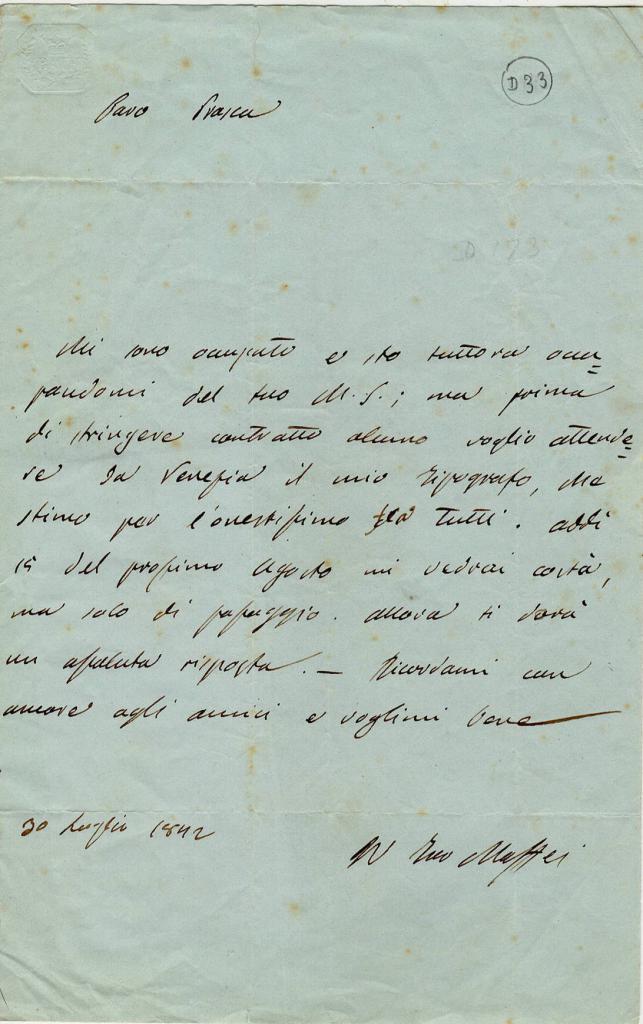 D 33
Caro Prasca
D 173
Mi sono occupato e sto tuttora occu=
pandomi del tuo M.S.; ma prima
di stringere contratto alcuno voglio attende=
re da Venezia il mio Tipografo, che
stimo per l'onestissimo fra tutti. Addì
15 del prossimo Agosto mi vedrai costà,
ma solo di passaggio. Allora ti darò
un assoluta risposta. — Ricordami con
amore agli amici e voglimi bene
30 Luglio 1842
Il tuo Maffei